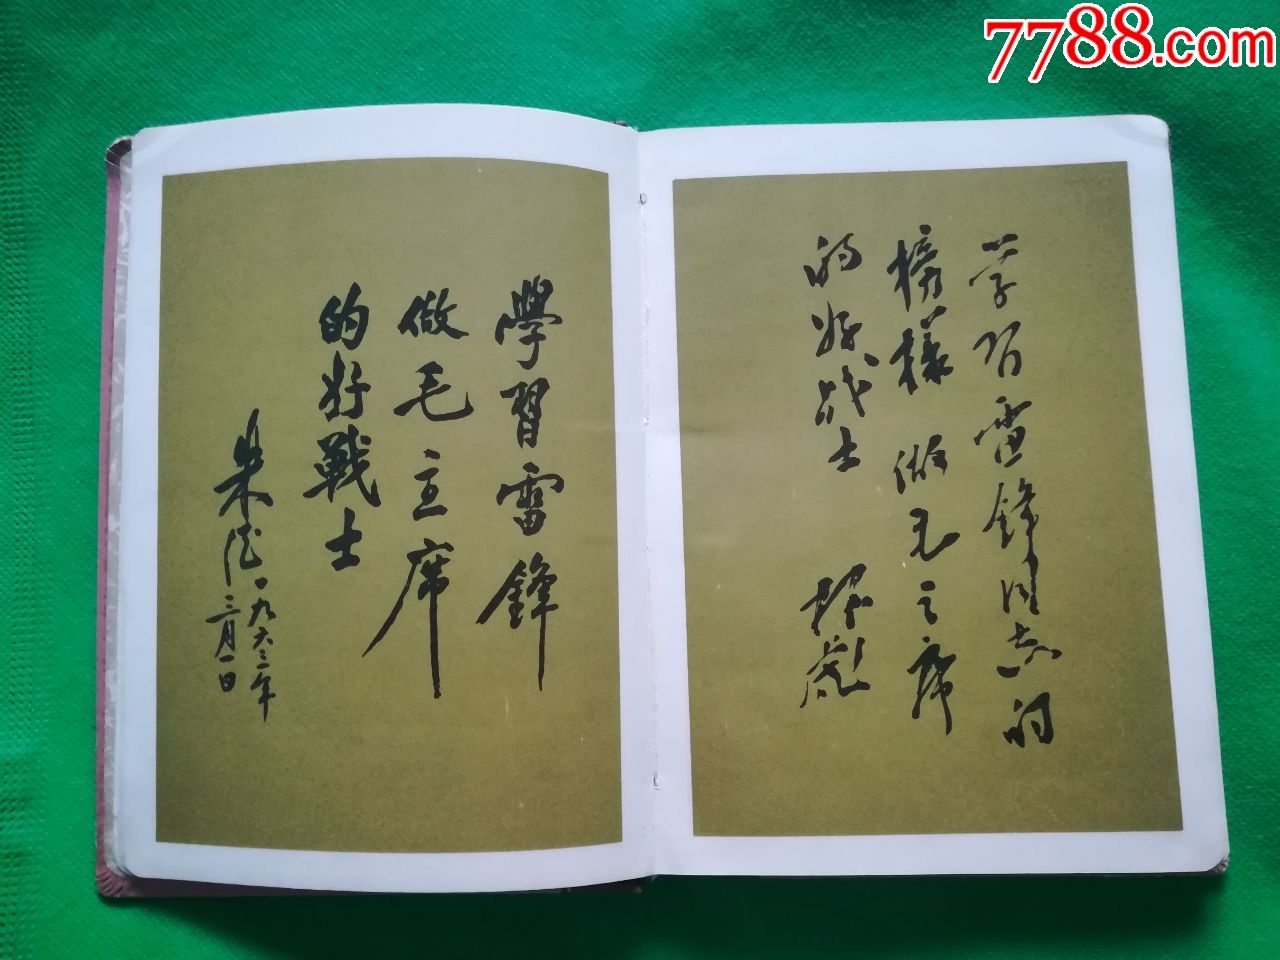 7788.com
學習雷鋒
做毛主席
的好戰士
朱德 一九六三年
三月一日
学习雷锋同志的
榜樣 做毛主席
的好战士 林彪